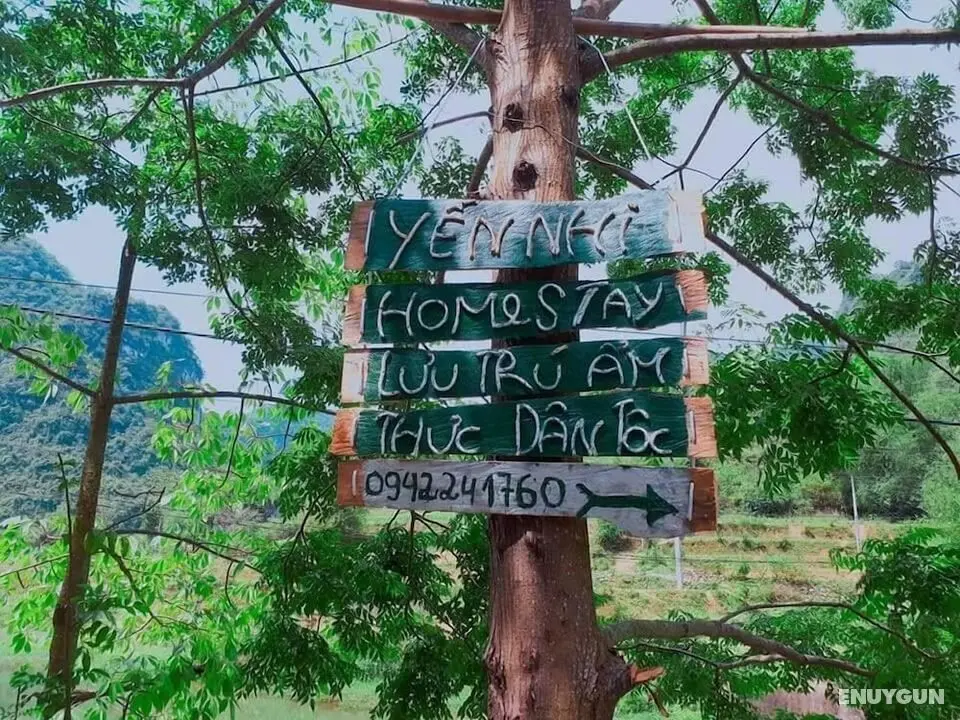 YẾN NHi
HOMeSTAY
LƯU TRÚ ẨM
THỰC DÂN TỘC
0942241760
ENUYGUN